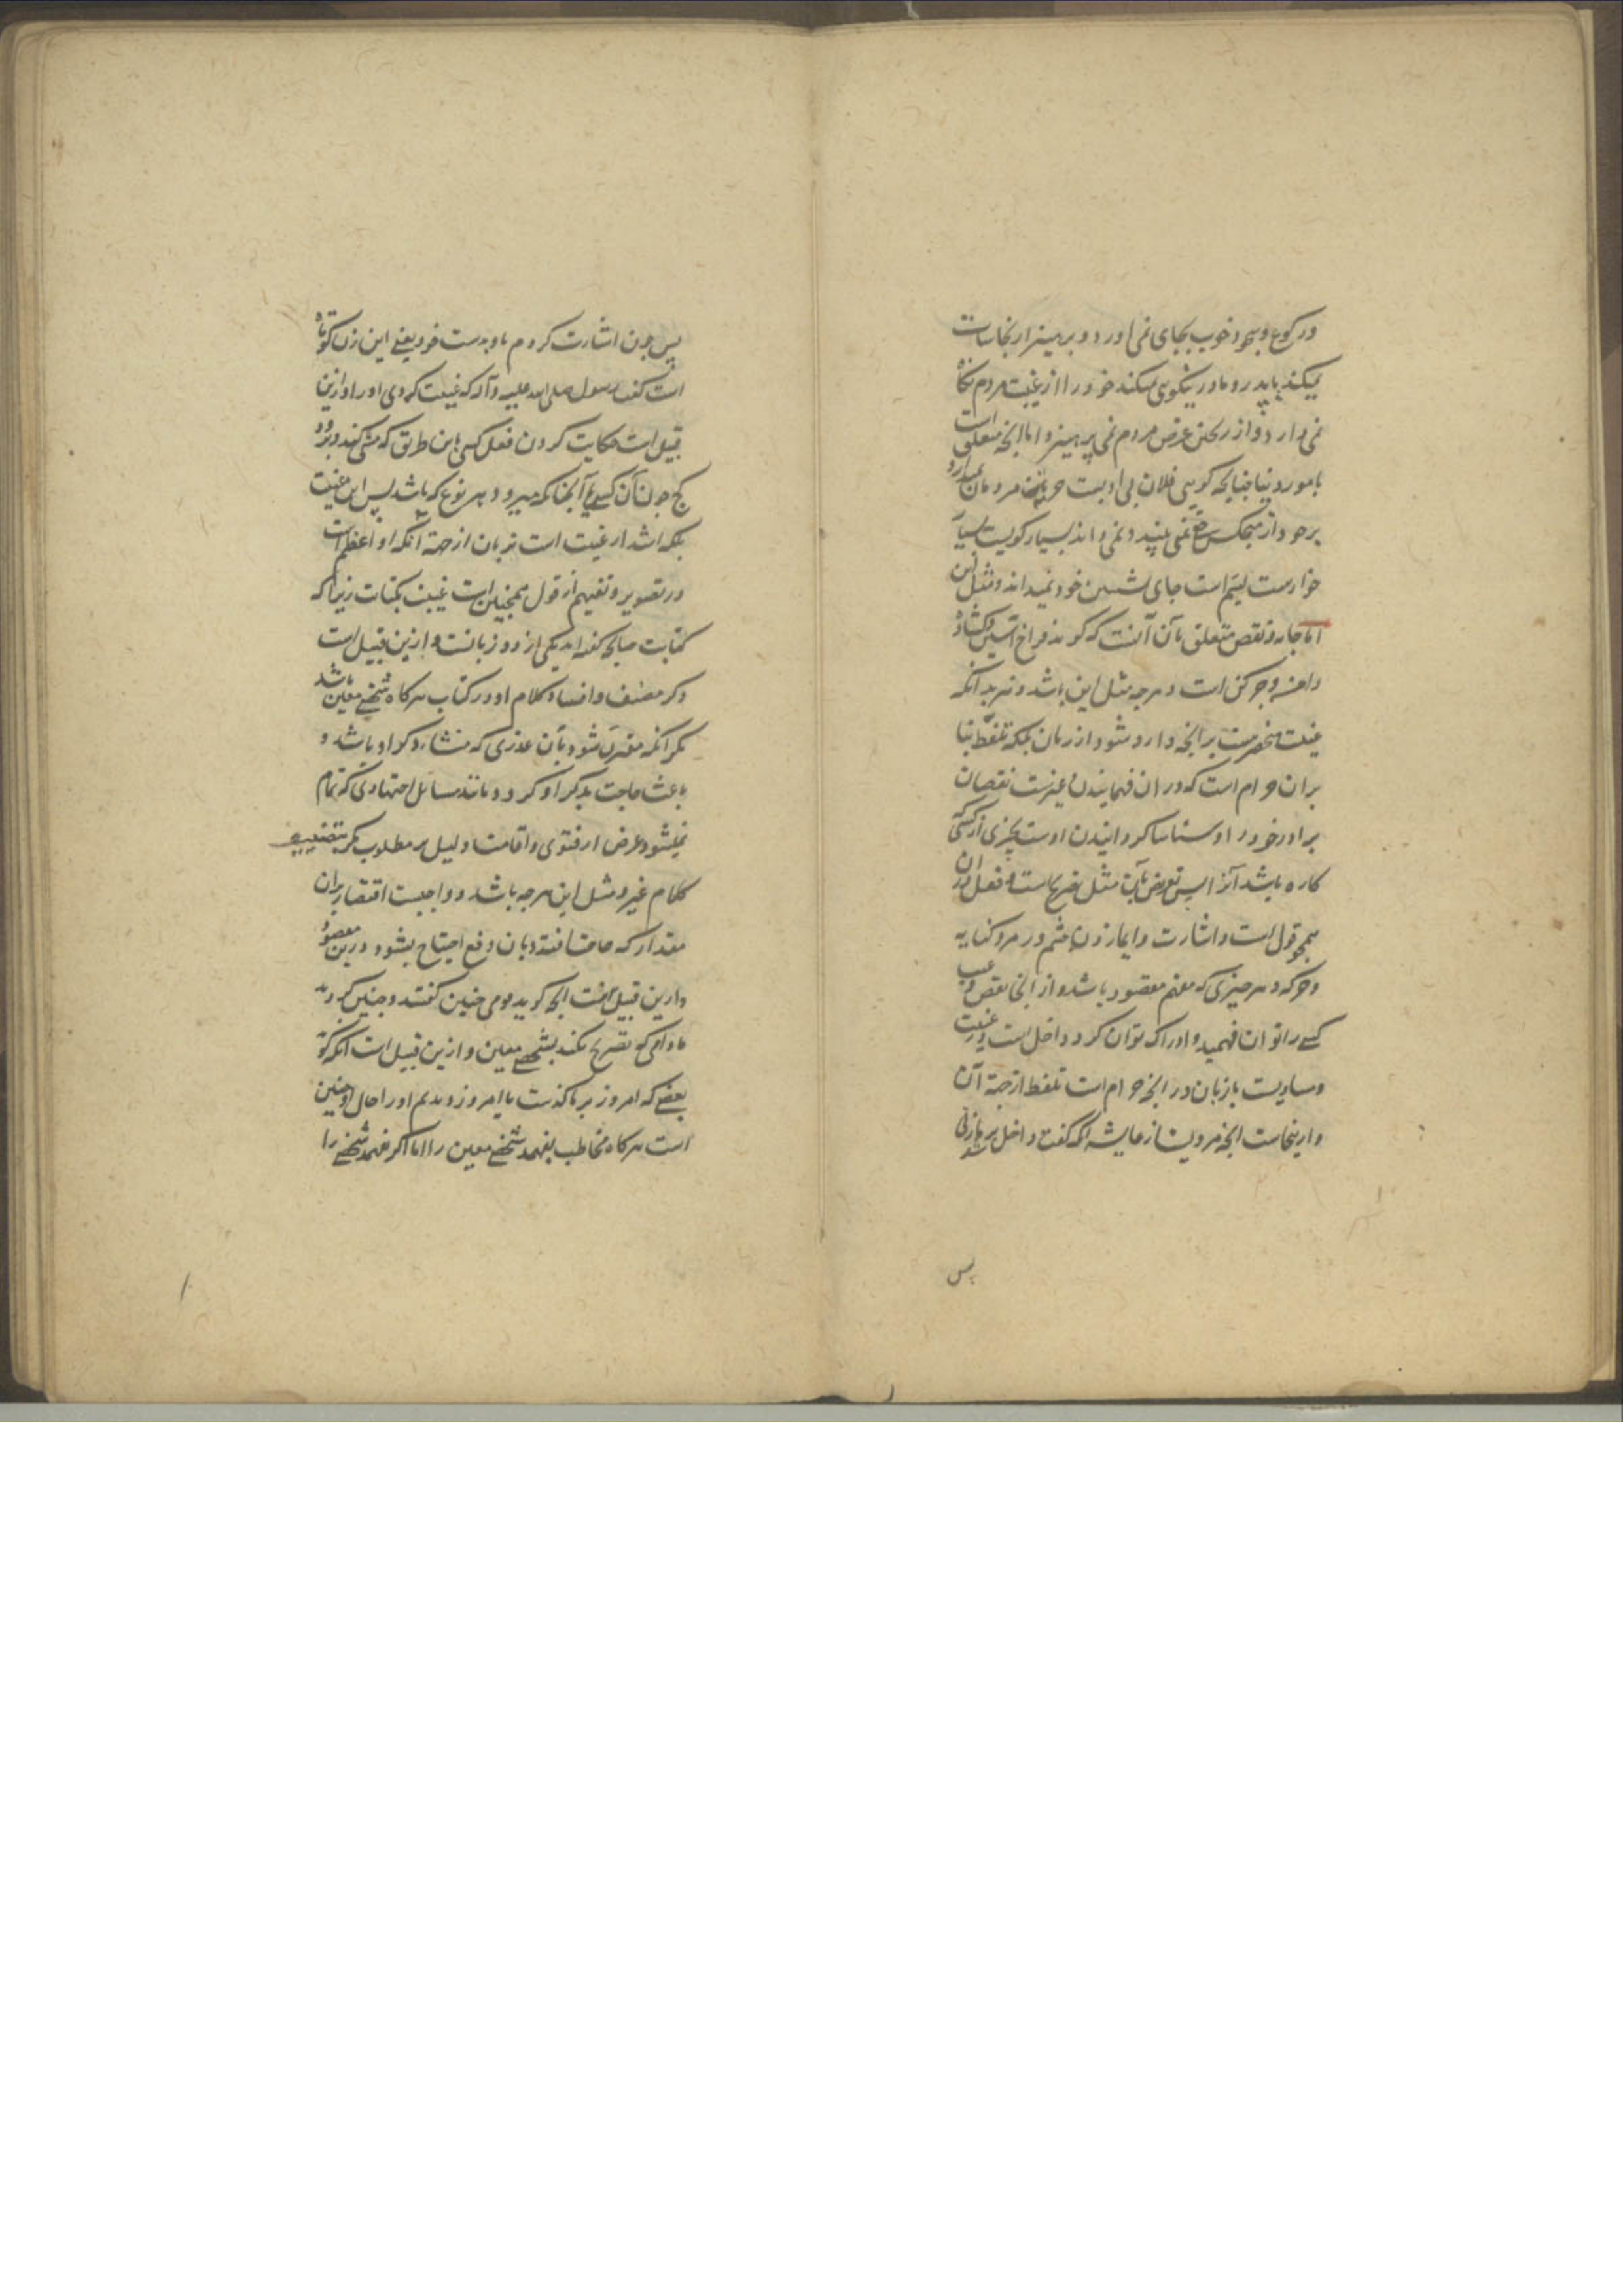 در رکوع و سجود خوب بجای نمی اورد و برهیز از نجاسات
نمیکند با پدر و مادر نیکویی نمیکند خود را از غیبت مردم نگاه
نمی دارد و از عرض مردم نمی پرهیزد و اما انچه متعلق است
بامور دنیا چنانچه کویی فلان بی ادبست مردمان
بر خود از هیچکس نمی بیند و نمی داند بسیار کویست بسیار
خوارست لئیم است جای نشستن خود نمیداند و مثل این
اما جامه و نقص متعلق بآن آنست که کویند فراخ آستین و کشاده
دامنه و چرکن است و هرچه مثل این باشد و نیز بدانکه
غیبت منحصر نیست بر انچه وارد شود از زبان بلکه تلفظ بنا
بران حرام است که در ان فهمانیدن غیرست نقصان
برادر خود را و شناسا کردانیدن اوست بچیزی از کسی که
کاره باشد آنرا پس تعریض بآن مثل تصریح است و فعل در ان
همچو قول است و اشارت و ایما زدن چشم و رمز و کنایه
و حرکه و هر چیزی که مفهم مقصود باشد و از انجا نقص و عیب
کسی را توان فهمید و ادراک توان کرد داخل است در غیبت
و مساویست با زبان در انچه حرام است تلفظ از جهة آن
و ازینجاست انچه مرویست از عایشه که گفت داخل شد بر ما زنی
پس
پس چون اشارت کردم باو بدست خود یعنی این زن کوتاه
است گفت رسول صلی الله علیه وآله که غیبت کردی او را و ازین
قبیل است حکایت کردن فعل کسی باین طریق که مشی کند و برود
کج چون آن کس یا آنچنانکه میرود بهر نوع که باشد پس این غیبت
بلکه اشد از غیبت است بزبان از جهة انکه او اعظم است
در تصویر و تفهیم از قول همچنین است غیبت بکتابت زیرا که
کتابت چنانچه گفته اند یکی از دو زبانست و ازین قبیل است
ذکر مصنف و افساد کلام او در کتاب هرکاه شخصی معین باشد
مکر انکه مقترن شود بآن عذری که منشاء ذکر او باشد و
باعث حاجت بذکر او کردد مانند مسائل اجتهادی که تمام
نمیشود غرض از فتوی و اقامت دلیل بر مطلوب مکر بتضعیف
کلام غیر و مثل این هرچه باشد و واجبست اقتصار بران
مقدار که حاجت افتد و بان رفع احتیاج بشود و درین مقصود
و ازین قبیل نیست انچه کوید قومی چنین گفتند و چنین کردند
مادامی که تصریح نکند بشخصی معین و ازین قبیل است انکه کوید
بعضی که امروز بر ما گذشت یا امروز دیدم او را حال او چنین
است هرکاه مخاطب بفهمد شخصی معین را اما اکر نفهمد شخصی را